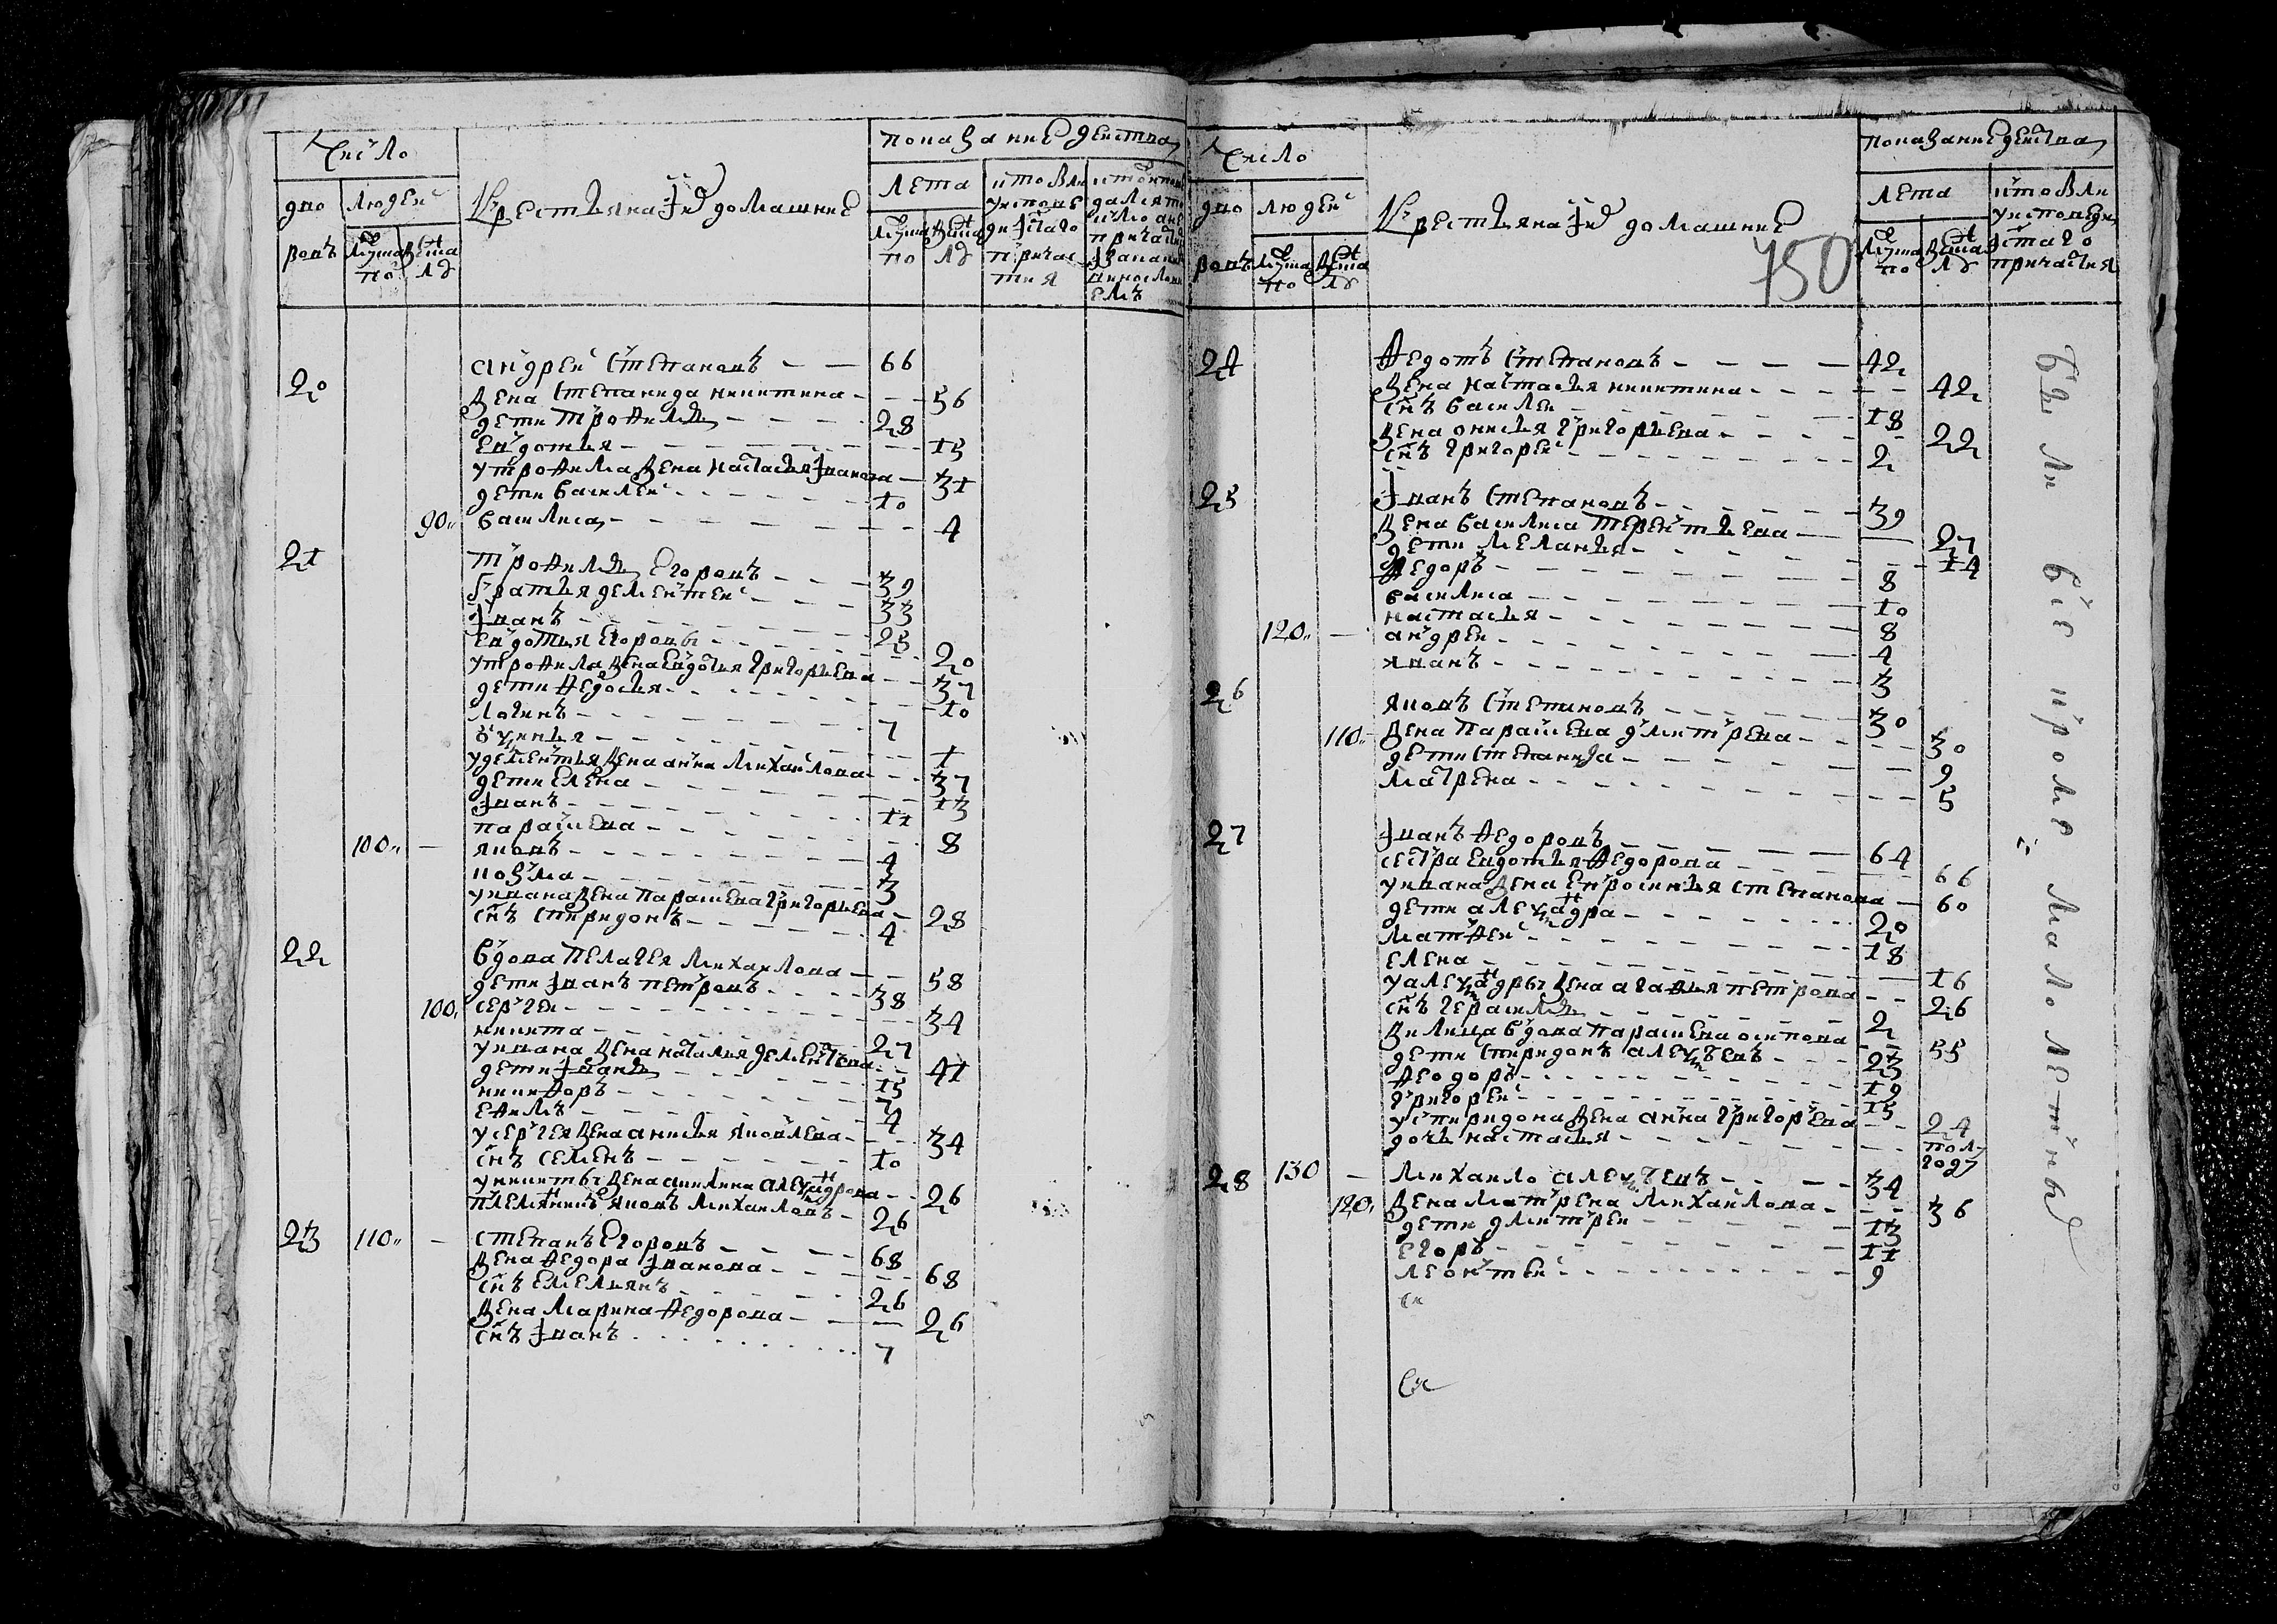 Число
показание действа
дво
ровъ
людей
мужеска
по
женска
лу
Крестьяна и их домашние
лета
мужа
по
женска
лу
кто были
у исповеди
и святаго
причас
тия
20
андрей степановъ — — 66
жена степанида никитина — 56
дети трофимъ — 28
евдотья — 15
у трофима жена настасья иванова — 31
дети василей — 10
90 василиса — 4
21
трофимъ егоровъ — 39
братья дементей — 33
иванъ — 25
евдотья егоровы — 20
у трофима жена евдотья григорьева — 37
дети федосья — 10
логинъ — 7
ксения — 1
у дементья жена анна михайлова — 37
дети елена — 13
иванъ — 11
парасковья — 8
100 — яковъ — 4
козма — 3
у ивана жена парасковья григорьева — 28
снъ спиридонъ — 4
22
вдова пелагея михайлова — 58
дети иванъ петровъ — 38
100 сергей — 34
никита — 27
у ивана жена наталья дементева — 41
дети иванъ — 15
никифоръ — 7
ефимъ — 4
у сергея жена анисья яковлева — 34
снъ семенъ — 10
у никиты жена акилина александрова — 26
племянникъ яковъ михайловъ — 26
23 110 —
степанъ егоровъ — 68
жена федора иванова — 68
снъ емельянъ — 26
жена марина федорова — 26
снъ иванъ — 7
Число
показание действа
дво
ровъ
людей
мужеска
по
женска
лу
Крестьяна и их домашние
750
лета
мужеска
по
женска
лу
кто были
у исповеди
и святаго
причастия
24
федотъ степановъ — 42
жена настасья никитина — 42
снъ василей — 18
жена онисья григорьева — 22
снъ григорей — 2
25
иванъ степановъ — 39
жена василиса терентьева — 27
дети меланья — 14
федоръ — 8
василиса — 10
120 — настасья — 8
андрей — 4
иванъ — 3
26
яковъ степановъ — 30
110 жена парасковья дмитрева — 30
дети степанида — 9
матрена — 5
27
иванъ федоровъ — 64
сестра евдотья федорова — 66
у ивана жена ефросинья степанова — 60
дети александра — 20
матфей — 18
елена — 16
у александры жена агафья петрова — 26
снъ герасимъ — 2
вдова парасковья осипова — 55
дети спиридонъ алексеевъ — 23
феодоръ — 19
григорей — 15
у спиридона жена анна григорьева — 24
дочь настасья — полугоду
28 130 — михайло алексеевъ — 34
120 жена матрена михайлова — 36
дети дмитрей — 13
егоръ — 11
леонтей — 9
были все кроме малолетных